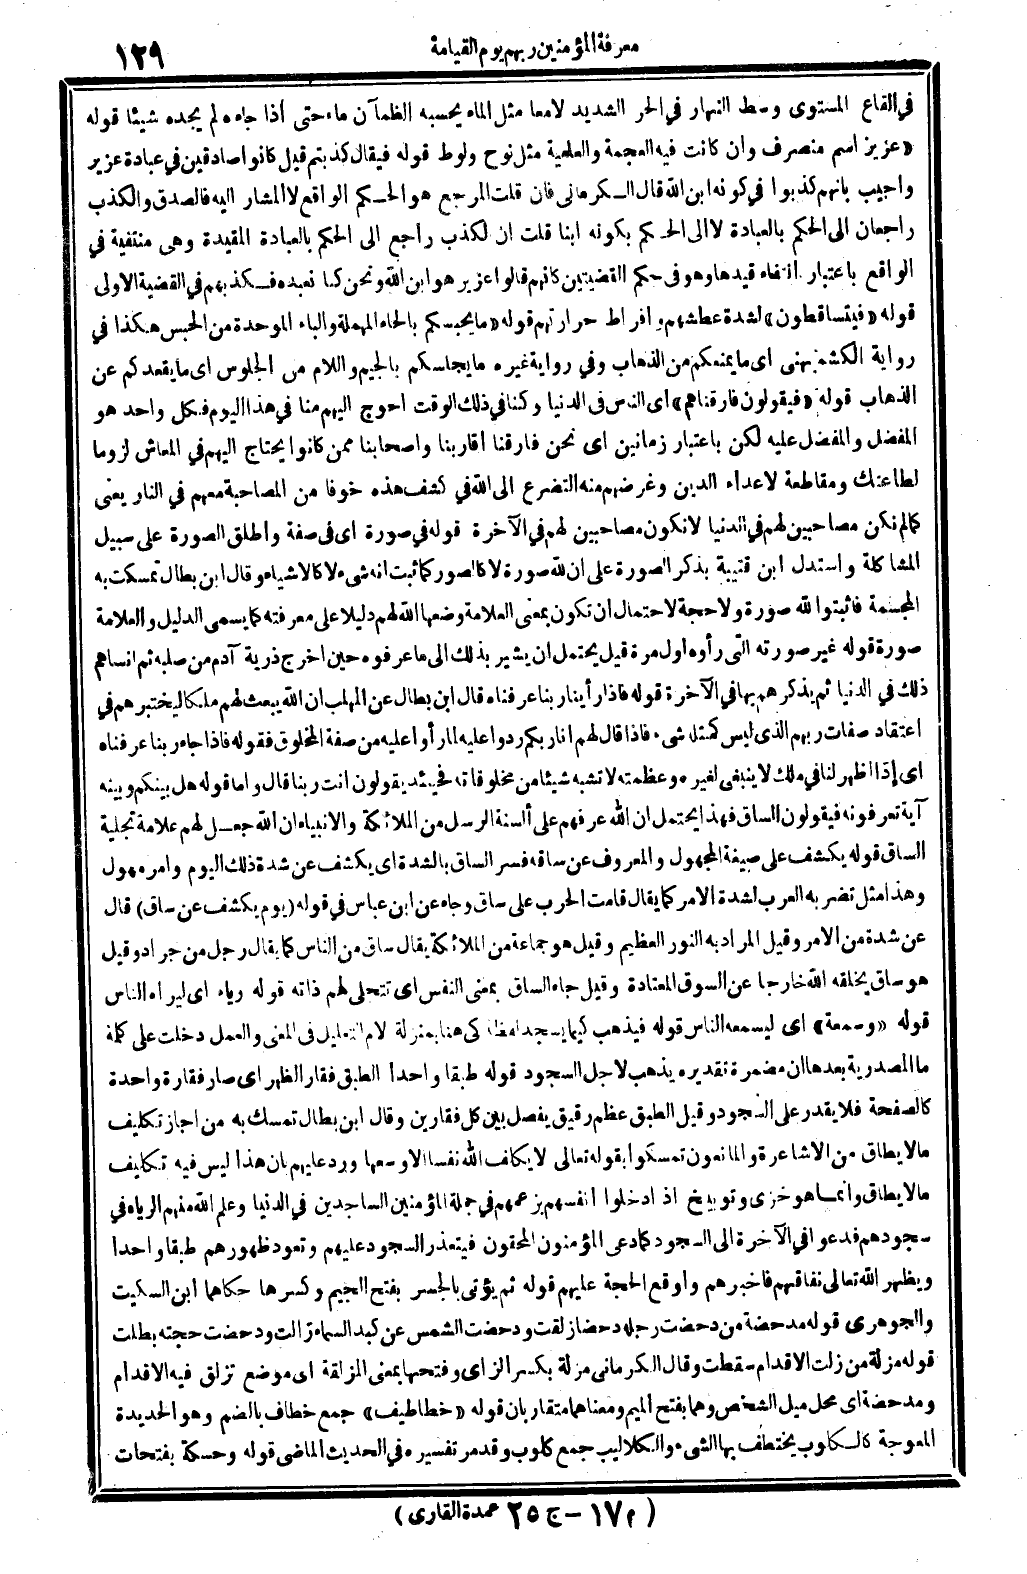 معرفة المؤمنين ربهم يوم القيامة
١٢٩
في القاع المستوى وسط النهار في الحر الشديد لامعا مثل الماء يحسبه الظمآن ماء حتى اذا جاءه لم يجده شيئا قوله
«عزيز اسم منصرف وان كانت فيه العجمة والعلمية مثل نوح ولوط قوله فيقال كذبتم قيل كانوا صادقين في عبادة عزير
واجيب بانهم كذبوا في كونه ابن الله قال الكرمانى فان قلت المرجع هو الحكم الواقع لا المشار اليه فالصدق والكذب
راجعان الى الحكم بالعبادة لا الى الحكم بكونه ابنا قلت ان لكذب راجع الى الحكم بالعبادة المقيدة وهى منتفية في
الواقع باعتبار انتفاء قيدها وهو فى حكم القضيتين كانهم قالوا عزير هو ابن الله ونحن كنا نعبده فكذبهم في القضية الاولى
قوله «فيتساقطون» لشدة عطشهم وافراط حرارتهم قوله «مايحبسكم بالحاء المهملة والباء الموحدة من الحبس هكذا في
رواية الكشميهنى اى مايمنعكم من الذهاب وفي رواية غيره مايجلسكم بالجيم واللام من الجلوس اى مايقعدكم عن
الذهاب قوله «فيقولون فارقناهم» اى الناس فى الدنيا وكنا في ذلك الوقت احوج اليهم منا في هذا اليوم فكل واحد هو
المفضل والمفضل عليه لكن باعتبار زمانين اى نحن فارقنا أقاربنا واصحابنا ممن كانوا يحتاج اليهم في المعاش لزوما
لطاعتك ومقاطعة لاعداء الدين وغرضهم منه التضرع الى الله في كشف هذه خوفا من المصاحبة معهم في النار يعنى
كما لم نكن مصاحبين لهم في الدنيا لانكون مصاحبين لهم في الآخرة قوله في صورة اى فى صفة وأطلق الصورة على سبيل
المشاكلة واستدل ابن قتيبة بذكر الصورة على ان لله صورة لا كالصور كما ثبت انه شىء لا كالاشياء وقال ابن بطال تمسكت به
المجسمة فاثبتوا لله صورة ولا حجة لاحتمال ان تكون بمعنى العلامة وضعها الله لهم دليلا على معرفته كما يسمى الدليل والعلامة
صورة قوله غير صورته التى رأوه اول مرة قيل يحتمل ان يشير بذلك الى ما عرفوه حين اخرج ذرية آدم من صلبه ثم انساهم
ذلك في الدنيا ثم يذكرهم بها في الآخرة قوله فاذا رأينا ربنا عرفناه قال ابن بطال عن المهلب ان الله يبعث لهم ملكا ليختبرهم في
اعتقاد صفات ربهم الذى ليس كمثله شىء فاذا قال لهم انا ربكم ردوا عليه لما رأوا عليه من صفة المخلوق فقوله فاذا جاء ربنا عرفناه
اى إذا اظهر لنا في ملك لا ينبغى لغيره وعظمته لا تشبه شيئا من مخلوقاته فحينئذ يقولون انت ربنا قال واما قوله هل بينكم وبينه
آية تعرفونه فيقولون الساق فهذا يحتمل ان الله عرفهم على ألسنة الرسل من الملائكة والانبياء ان الله جعل لهم علامة تجلية
الساق قوله يكشف على صيغة المجهول والمعروف عن ساقه فسر الساق بالشدة اى يكشف عن شدة ذلك اليوم وامر مهول
وهذا مثل تضربه العرب لشدة الامر كما يقال قامت الحرب على ساق وجاء عن ابن عباس في قوله (يوم يكشف عن ساق) قال
عن شدة من الامر وقيل المراد به النور العظيم وقيل هو جماعة من الملائكة يقال ساق من الناس كما يقال رجل من جراد وقيل
هو ساق يخلقه الله خارجا عن السوق المعتادة وقيل جاء الساق بمعنى النفس اى تتجلى لهم ذاته قوله رياء اى ليراه الناس
قوله «وسمعة» اى ليسمعه الناس قوله فيذهب كيما يسجد لفظة كى هنا بمنزلة لام التعليل فى المعنى والعمل دخلت على كلمة
ما المصدرية بعدها ان مضمرة تقديره يذهب لاجل السجود قوله طبقا واحدا الطبق فقار الظهر اى صار فقارة واحدة
كالصفحة فلا يقدر على السجود وقيل الطبق عظم رقيق يفصل بين كل فقارين وقال ابن بطال تمسك به من اجاز تكليف
مالا يطاق من الاشاعرة والمانعون تمسكوا بقوله تعالى لا يكلف الله نفسا الا وسعها ورد عليهم بان هذا ليس فيه تكليف
مالا يطاق وانما هو خزى وتوبيخ اذ ادخلوا انفسهم بزعمهم في جملة المؤمنين الساجدين في الدنيا وعلم الله منهم الرياء في
سجودهم فدعوا في الآخرة الى السجود كما دعى المؤمنون المحقون فيتعذر السجود عليهم وتعود ظهورهم طبقا واحدا
ويظهر الله تعالى نفاقهم فاخبرهم واوقع الحجة عليهم قوله ثم يؤتى بالجسر بفتح الجيم وكسرها حكاهما ابن السكيت
والجوهرى قوله مدحضة من دحضت رجله دحضا زلقت ودحضت الشمس عن كبد السماء زالت ودحضت حجته بطلت
قوله مزلة من زلت الاقدام سقطت وقال الكرمانى مزلة بكسر الزاى وفتحها بمعنى المزلقة اى موضع تزلق فيه الاقدام
ومدحضة اى محل ميل الشخص وهما بفتح الميم ومعناهما متقاربان قوله «خطاطيف» جمع خطاف بالضم وهو الحديدة
المعوجة كالكلوب يختطف بها الشىء والكلاليب جمع كلوب وقد مر تفسيره في الحديث الماضى قوله وحسكة بفتحات
(م ١٧ - ج ٢٥ عمدة القارى)